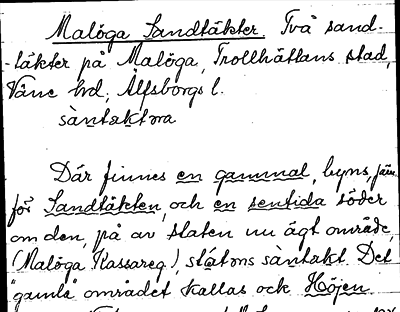 Malöga Sandtäkter. Två sand-
-täkter på Malöga, Trollhättans stad,
Väne hd, Älfsborgs l.
sàntaktəra
Där finnes en gammal, byns, jäm
för Sandtäkten, och en sentida söder
om den, på av staten nu ägt område,
(Malöga Kassareg.), státəns sàntakt. Det
"gamla" området kallas ock Höjen.